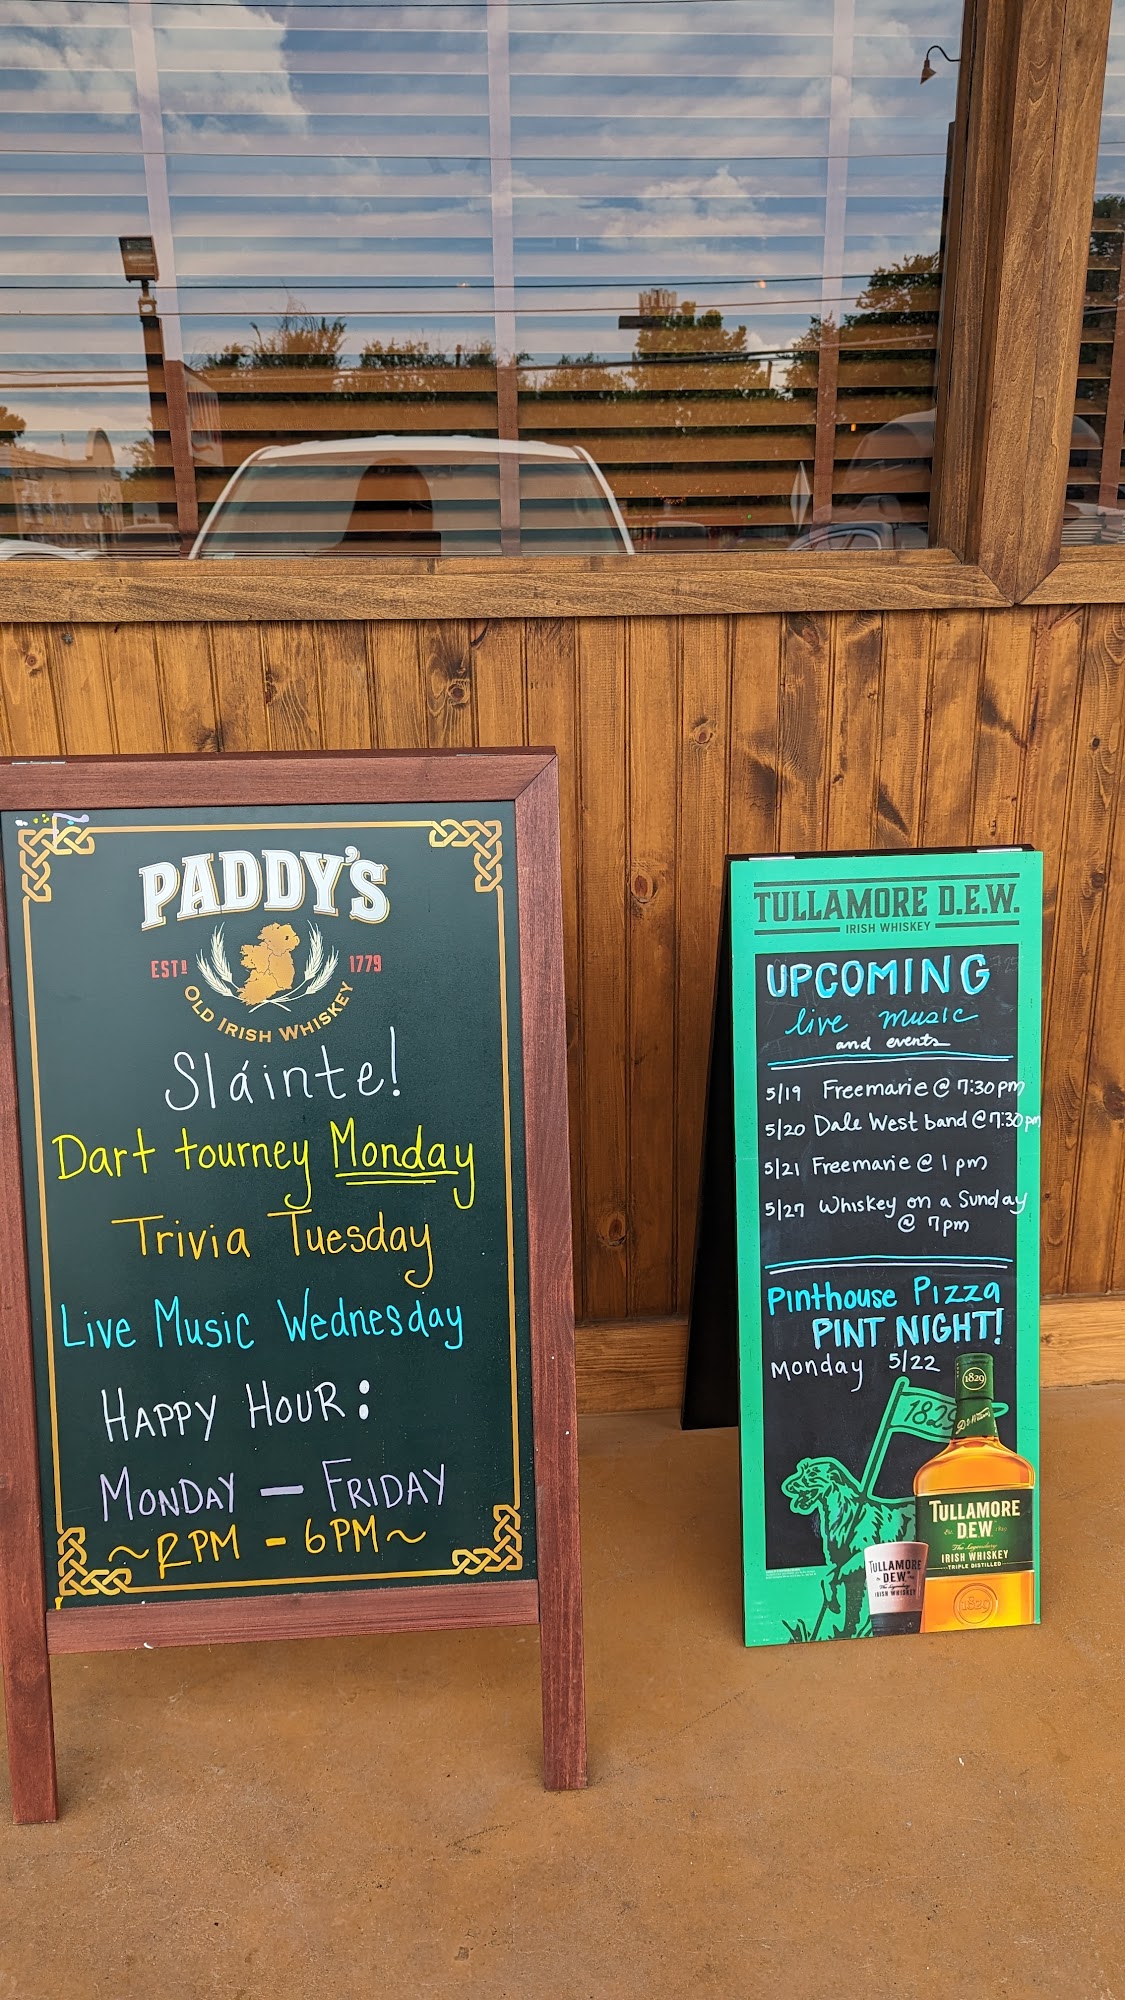 PADDY'S
ESTD 1779
OLD IRISH WHISKEY
Sláinte!
Dart tourney Monday
Trivia Tuesday
Live Music Wednesday
HAPPY HOUR:
MONDAY — FRIDAY
~ 2PM - 6PM ~
TULLAMORE D.E.W.
IRISH WHISKEY
UPCOMING
live music
and events
5/19 Freemarie @ 7:30 pm
5/20 Dale West band @ 7:30 pm
5/21 Freemarie @ 1 pm
5/27 Whiskey on a Sunday
@ 7pm
Pinthouse Pizza
PINT NIGHT!
Monday 5/22
1829
1829
TULLAMORE
DEW
The Legendary
IRISH WHISKEY
TRIPLE DISTILLED
1829
TULLAMORE
DEW
The Legendary
IRISH WHISKEY